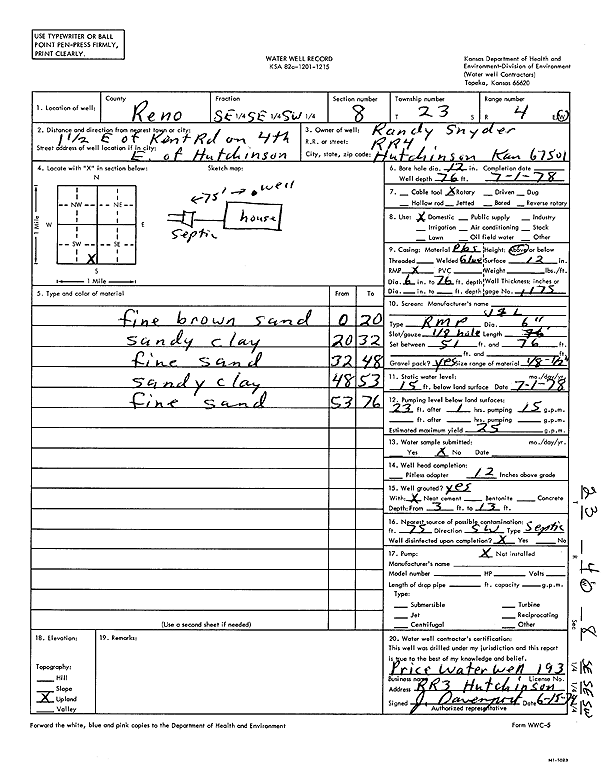 USE TYPEWRITER OR BALL
POINT PEN-PRESS FIRMLY,
PRINT CLEARLY.
WATER WELL RECORD
KSA 82a-1201-1215
Kansas Department of Health and
Environment-Division of Environment
(Water well Contractors)
Topeka, Kansas 66620
1. Location of well:
County Reno
Fraction SE 1/4 SE 1/4 SW 1/4
Section number 8
Township number T 23 S
Range number R 4 E W
2. Distance and direction from nearest town or city: 1 1/2 E of Kent Rd on 4th
Street address of well location if in city: E. of Hutchinson
3. Owner of well: Randy Snyder
R.R. or street: RR4
City, state, zip code: Hutchinson Kan 67501
4. Locate with "X" in section below:
Sketch map:
N
NW NE
W E
SW SE
X
S
1 Mile
1 Mile
75' well
house
Septic
6. Bore hole dia. 12 in. Completion date
Well depth 76 ft. 7-1-78
7. Cable tool X Rotary Driven Dug
Hollow rod Jetted Bored Reverse rotary
8. Use: X Domestic Public supply Industry
Irrigation Air conditioning Stock
Lawn Oil field water Other
9. Casing: Material Pbs Height: Above or below
Threaded Welded Glue Surface 12 in.
RMP X PVC Weight lbs./ft.
Dia. 6 in. to 76 ft. depth Wall Thickness: inches or
Dia. in. to ft. depth gage No. .1175
5. Type and color of material From To
fine brown sand 0 20
sandy clay 20 32
fine sand 32 48
sandy clay 48 53
fine sand 53 76
(Use a second sheet if needed)
10. Screen: Manufacturer's name
Type RMP Dia. 6"
Slot/gauze 1/8 hole Length 76'
Set between 51 ft. and 76 ft.
ft. and ft.
Gravel pack? yes Size range of material 1/8-1/2"
11. Static water level: mo./day/yr.
15 ft. below land surface Date 7-1-78
12. Pumping level below land surfaces:
23 ft. after 1 hrs. pumping 15 g.p.m.
ft. after hrs. pumping g.p.m.
Estimated maximum yield 25 g.p.m.
13. Water sample submitted: mo./day/yr.
Yes X No Date
14. Well head completion:
Pitless adapter 12 Inches above grade
15. Well grouted? yes
With: X Neat cement Bentonite Concrete
Depth: From 3 ft. to 13 ft.
16. Nearest source of possible contamination:
ft. 75 Direction SW Type Septic
Well disinfected upon completion? X Yes No
17. Pump: X Not installed
Manufacturer's name
Model number HP Volts
Length of drop pipe ft. capacity g.p.m.
Type:
Submersible Turbine
Jet Reciprocating
Centrifugal Other
18. Elevation:
Topography:
Hill
Slope
X Upland
Valley
19. Remarks:
20. Water well contractor's certification:
This well was drilled under my jurisdiction and this report
is true to the best of my knowledge and belief.
Price Water Well 193
Business name License No.
Address RR3 Hutchinson
Signed J. Davenport Date 6-15-78
Authorized representative
T 23
R 4W
Sec 8
1/4 1/4 1/4 SE SE SW
Forward the white, blue and pink copies to the Department of Health and Environment
Form WWC-5